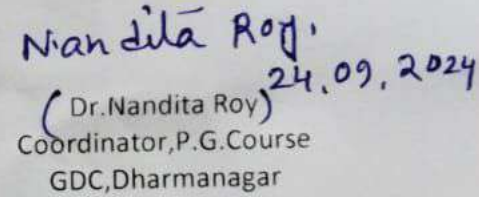 Nandita Roy.
24.09.2024
(Dr.Nandita Roy)
Coordinator,P.G.Course
GDC,Dharmanagar